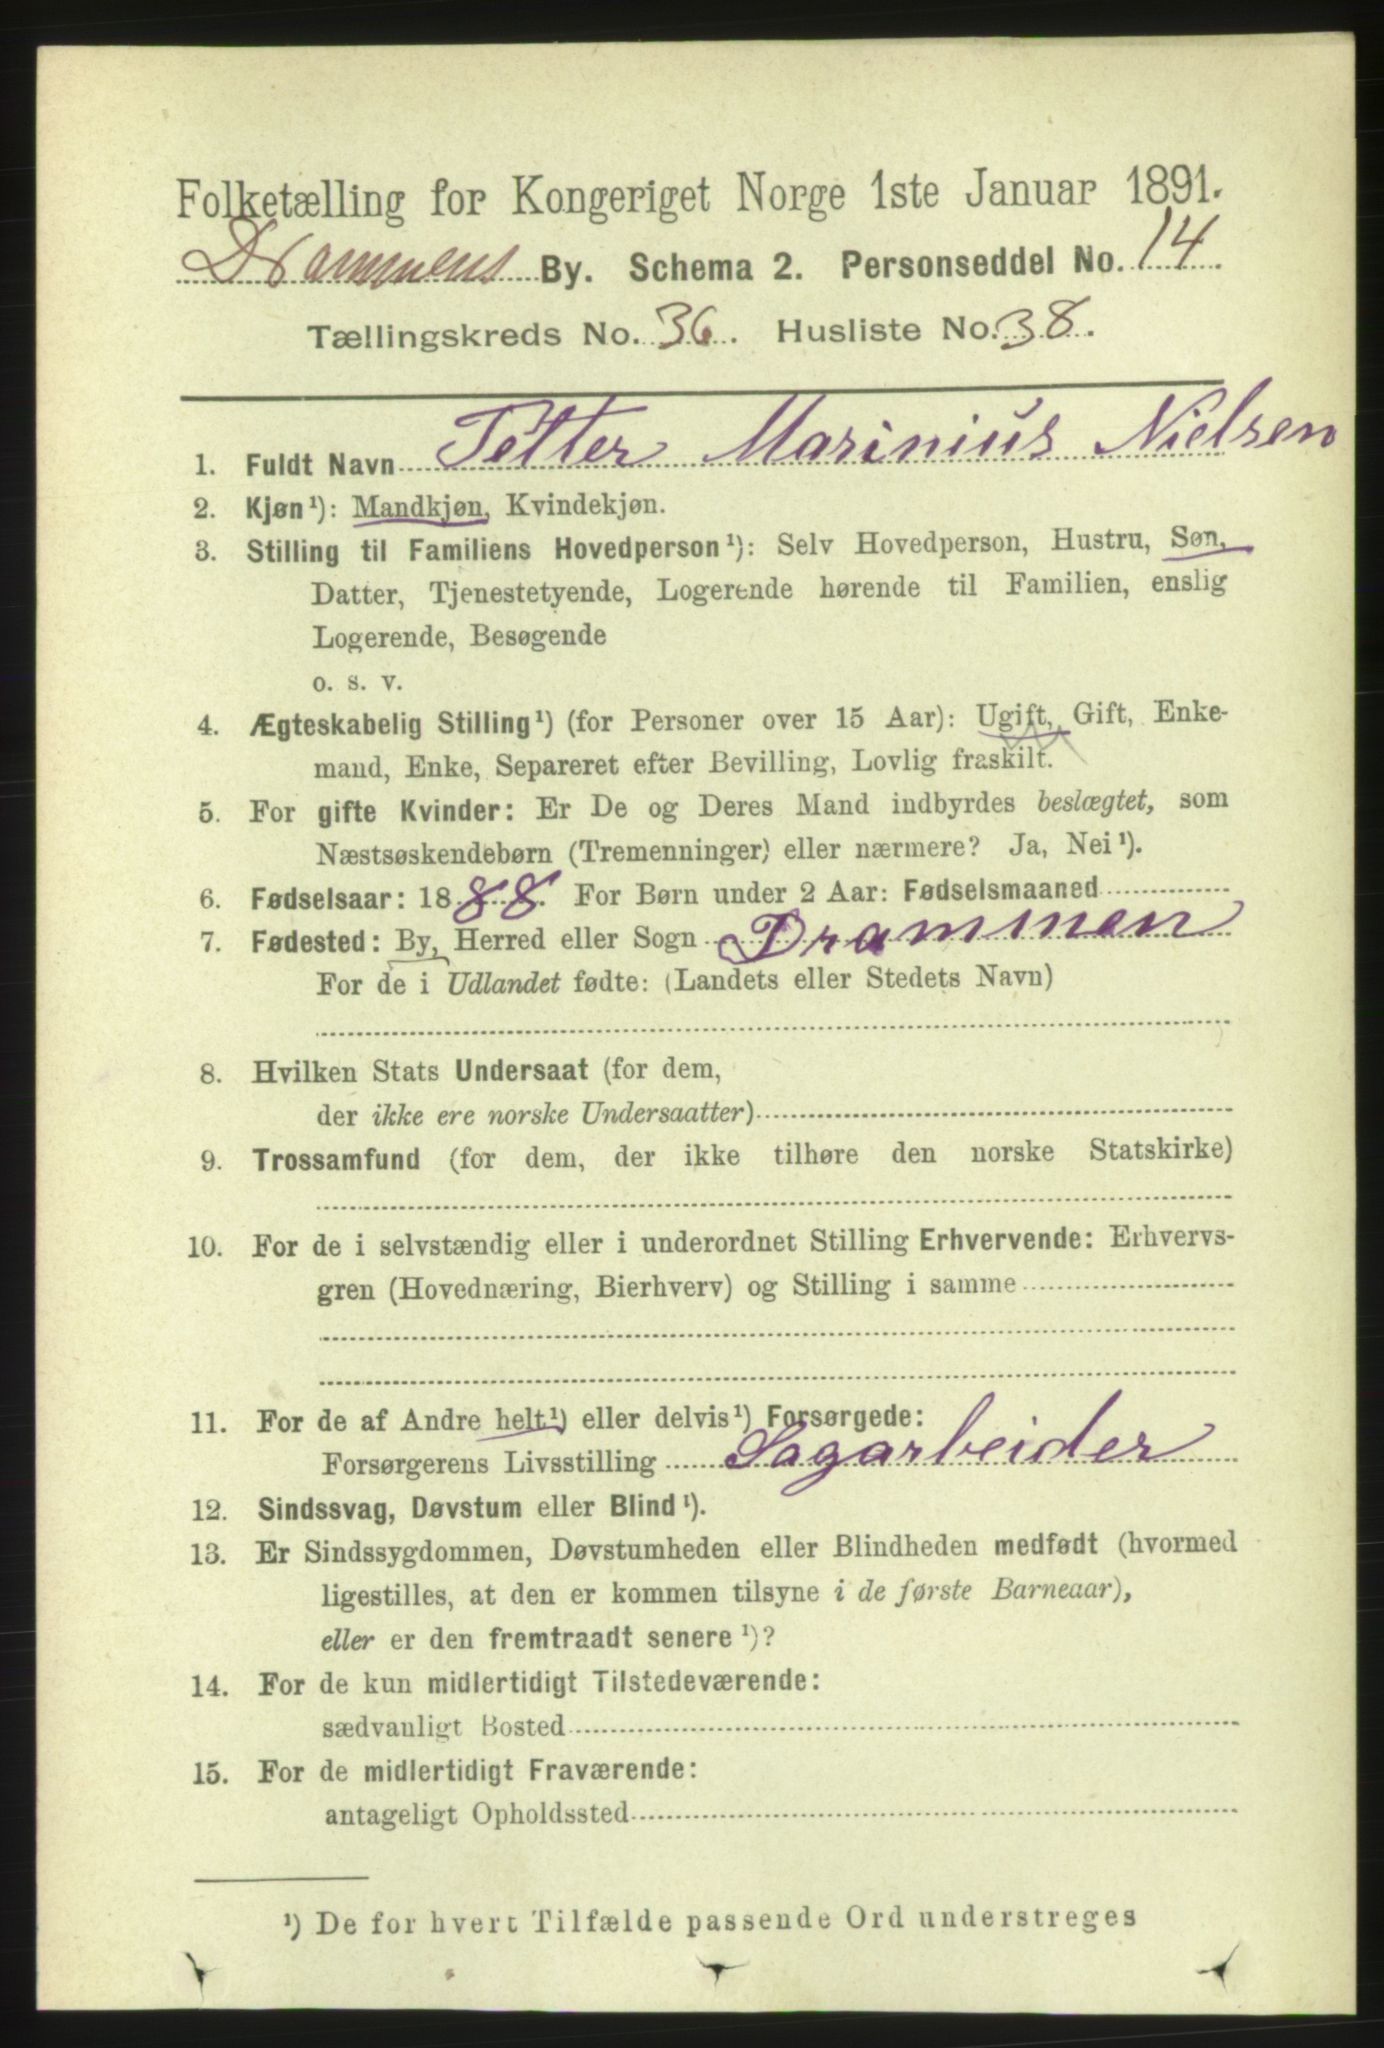 Folketælling for Kongeriget Norge 1ste Januar 1891.
Drammens By. Schema 2. Personseddel No. 14
Tællingskreds No. 36. Husliste No. 38.
1. Fuldt Navn Petter Marinius Nielsen
2. Kjøn¹): Mandkjøn, Kvindekjøn.
3. Stilling til Familiens Hovedperson¹): Selv Hovedperson, Hustru, Søn,
Datter, Tjenestetyende, Logerende hørende til Familien, enslig
Logerende, Besøgende
o. s. v.
4. Ægteskabelig Stilling¹) (for Personer over 15 Aar): Ugift, Gift, Enke-
mand, Enke, Separeret efter Bevilling, Lovlig fraskilt.
5. For gifte Kvinder: Er De og Deres Mand indbyrdes beslægtet, som
Næstsøskendebørn (Tremenninger) eller nærmere? Ja, Nei¹).
6. Fødselsaar: 1888. For Børn under 2 Aar: Fødselsmaaned
7. Fødested: By, Herred eller Sogn Drammen
For de i Udlandet fødte: (Landets eller Stedets Navn)
8. Hvilken Stats Undersaat (for dem,
der ikke ere norske Undersaatter)
9. Trossamfund (for dem, der ikke tilhøre den norske Statskirke)
10. For de i selvstændig eller i underordnet Stilling Erhvervende: Erhvervs-
gren (Hovednæring, Bierhverv) og Stilling i samme
11. For de af Andre helt¹) eller delvis¹) Forsørgede:
Forsørgerens Livsstilling Sagarbeider
12. Sindssvag, Døvstum eller Blind¹).
13. Er Sindssygdommen, Døvstumheden eller Blindheden medfødt (hvormed
ligestilles, at den er kommen tilsyne i de første Barneaar),
eller er den fremtraadt senere¹)?
14. For de kun midlertidigt Tilstedeværende:
sædvanligt Bosted
15. For de midlertidigt Fraværende:
antageligt Opholdssted
¹) De for hvert Tilfælde passende Ord understreges